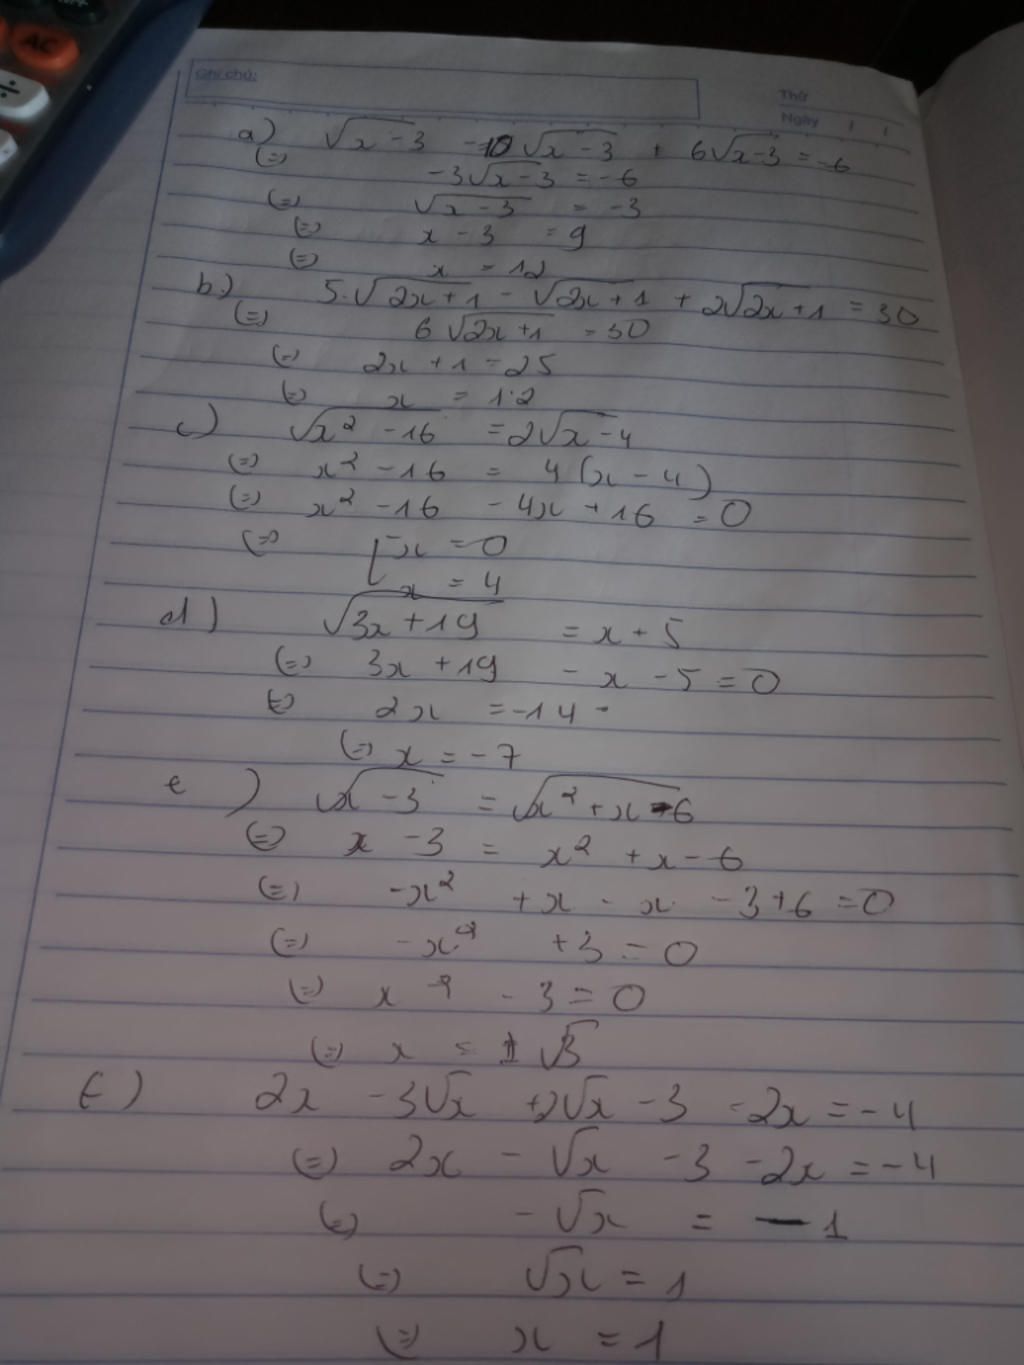 AC
÷
Ghi chú:
Thứ
Ngày / /
a) √x-3 -10√x-3 + 6√x-3 = -6
(=) -3√x-3 = -6
(=) √x-3 = -3
(=) x - 3 = 9
(=) x = 12
b) 5.√2x+1 - √2x+1 + 2√2x+1 = 30
(=) 6√2x+1 = 30
(=) 2x + 1 = 25
(=) x = 12
c) √x² - 16 = 2√x-4
(=) x² - 16 = 4(x - 4)
(=) x² - 16 - 4x + 16 = 0
(=) [x = 0
x = 4
d) √3x+19 = x + 5
(=) 3x + 19 - x - 5 = 0
(=) 2x = -14
(=) x = -7
e) √x - 3 = √x² + x - 6
(=) x - 3 = x² + x - 6
(=) -x² + x - x - 3 + 6 = 0
(=) -x² + 3 = 0
(=) x² - 3 = 0
(=) x = ±√3
f) 2x - 3√x + 2√x - 3 - 2x = -4
(=) 2x - √x - 3 - 2x = -4
(=) -√x = -1
(=) √x = 1
(=) x = 1